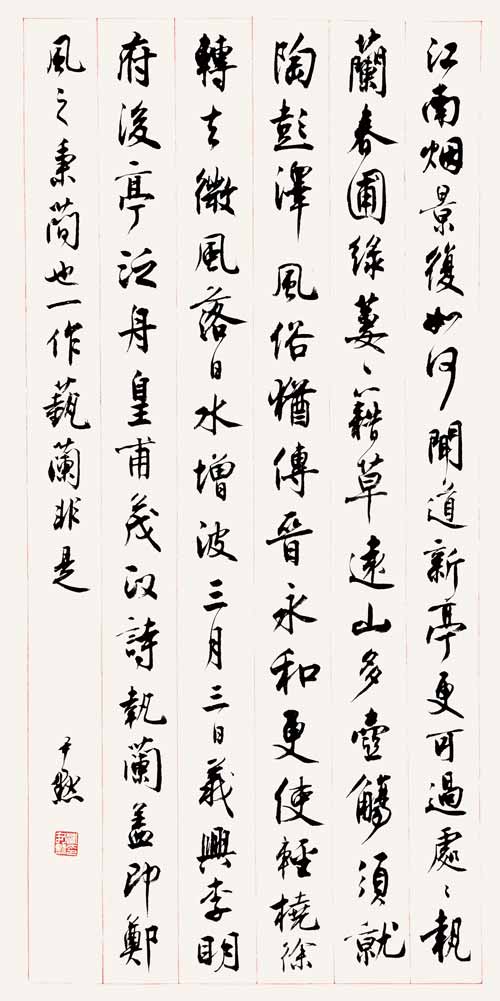 江南烟景復如何聞道新亭更可過處〻執
蘭春圃綠萋〻藉草遠山多壺觴須就
陶彭澤風俗猶傳晉永和更使輕橈徐
轉去微風落日水增波三月三日義興李明
府後亭泛舟皇甫茂政詩執蘭蓋即鄭
風之秉蕑也一作藝蘭非是
尹默